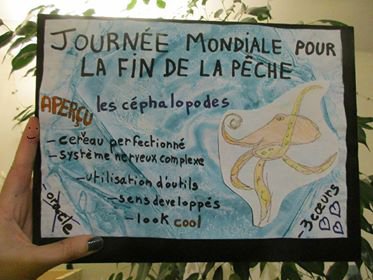 JOURNÉE MONDIALE POUR
LA FIN DE LA PÊCHE
APERÇU
les céphalopodes
- cerveau perfectionné
- système nerveux complexe
- utilisation d'outils
- sens developpés
- look cool
- oracle
- 3 cœurs